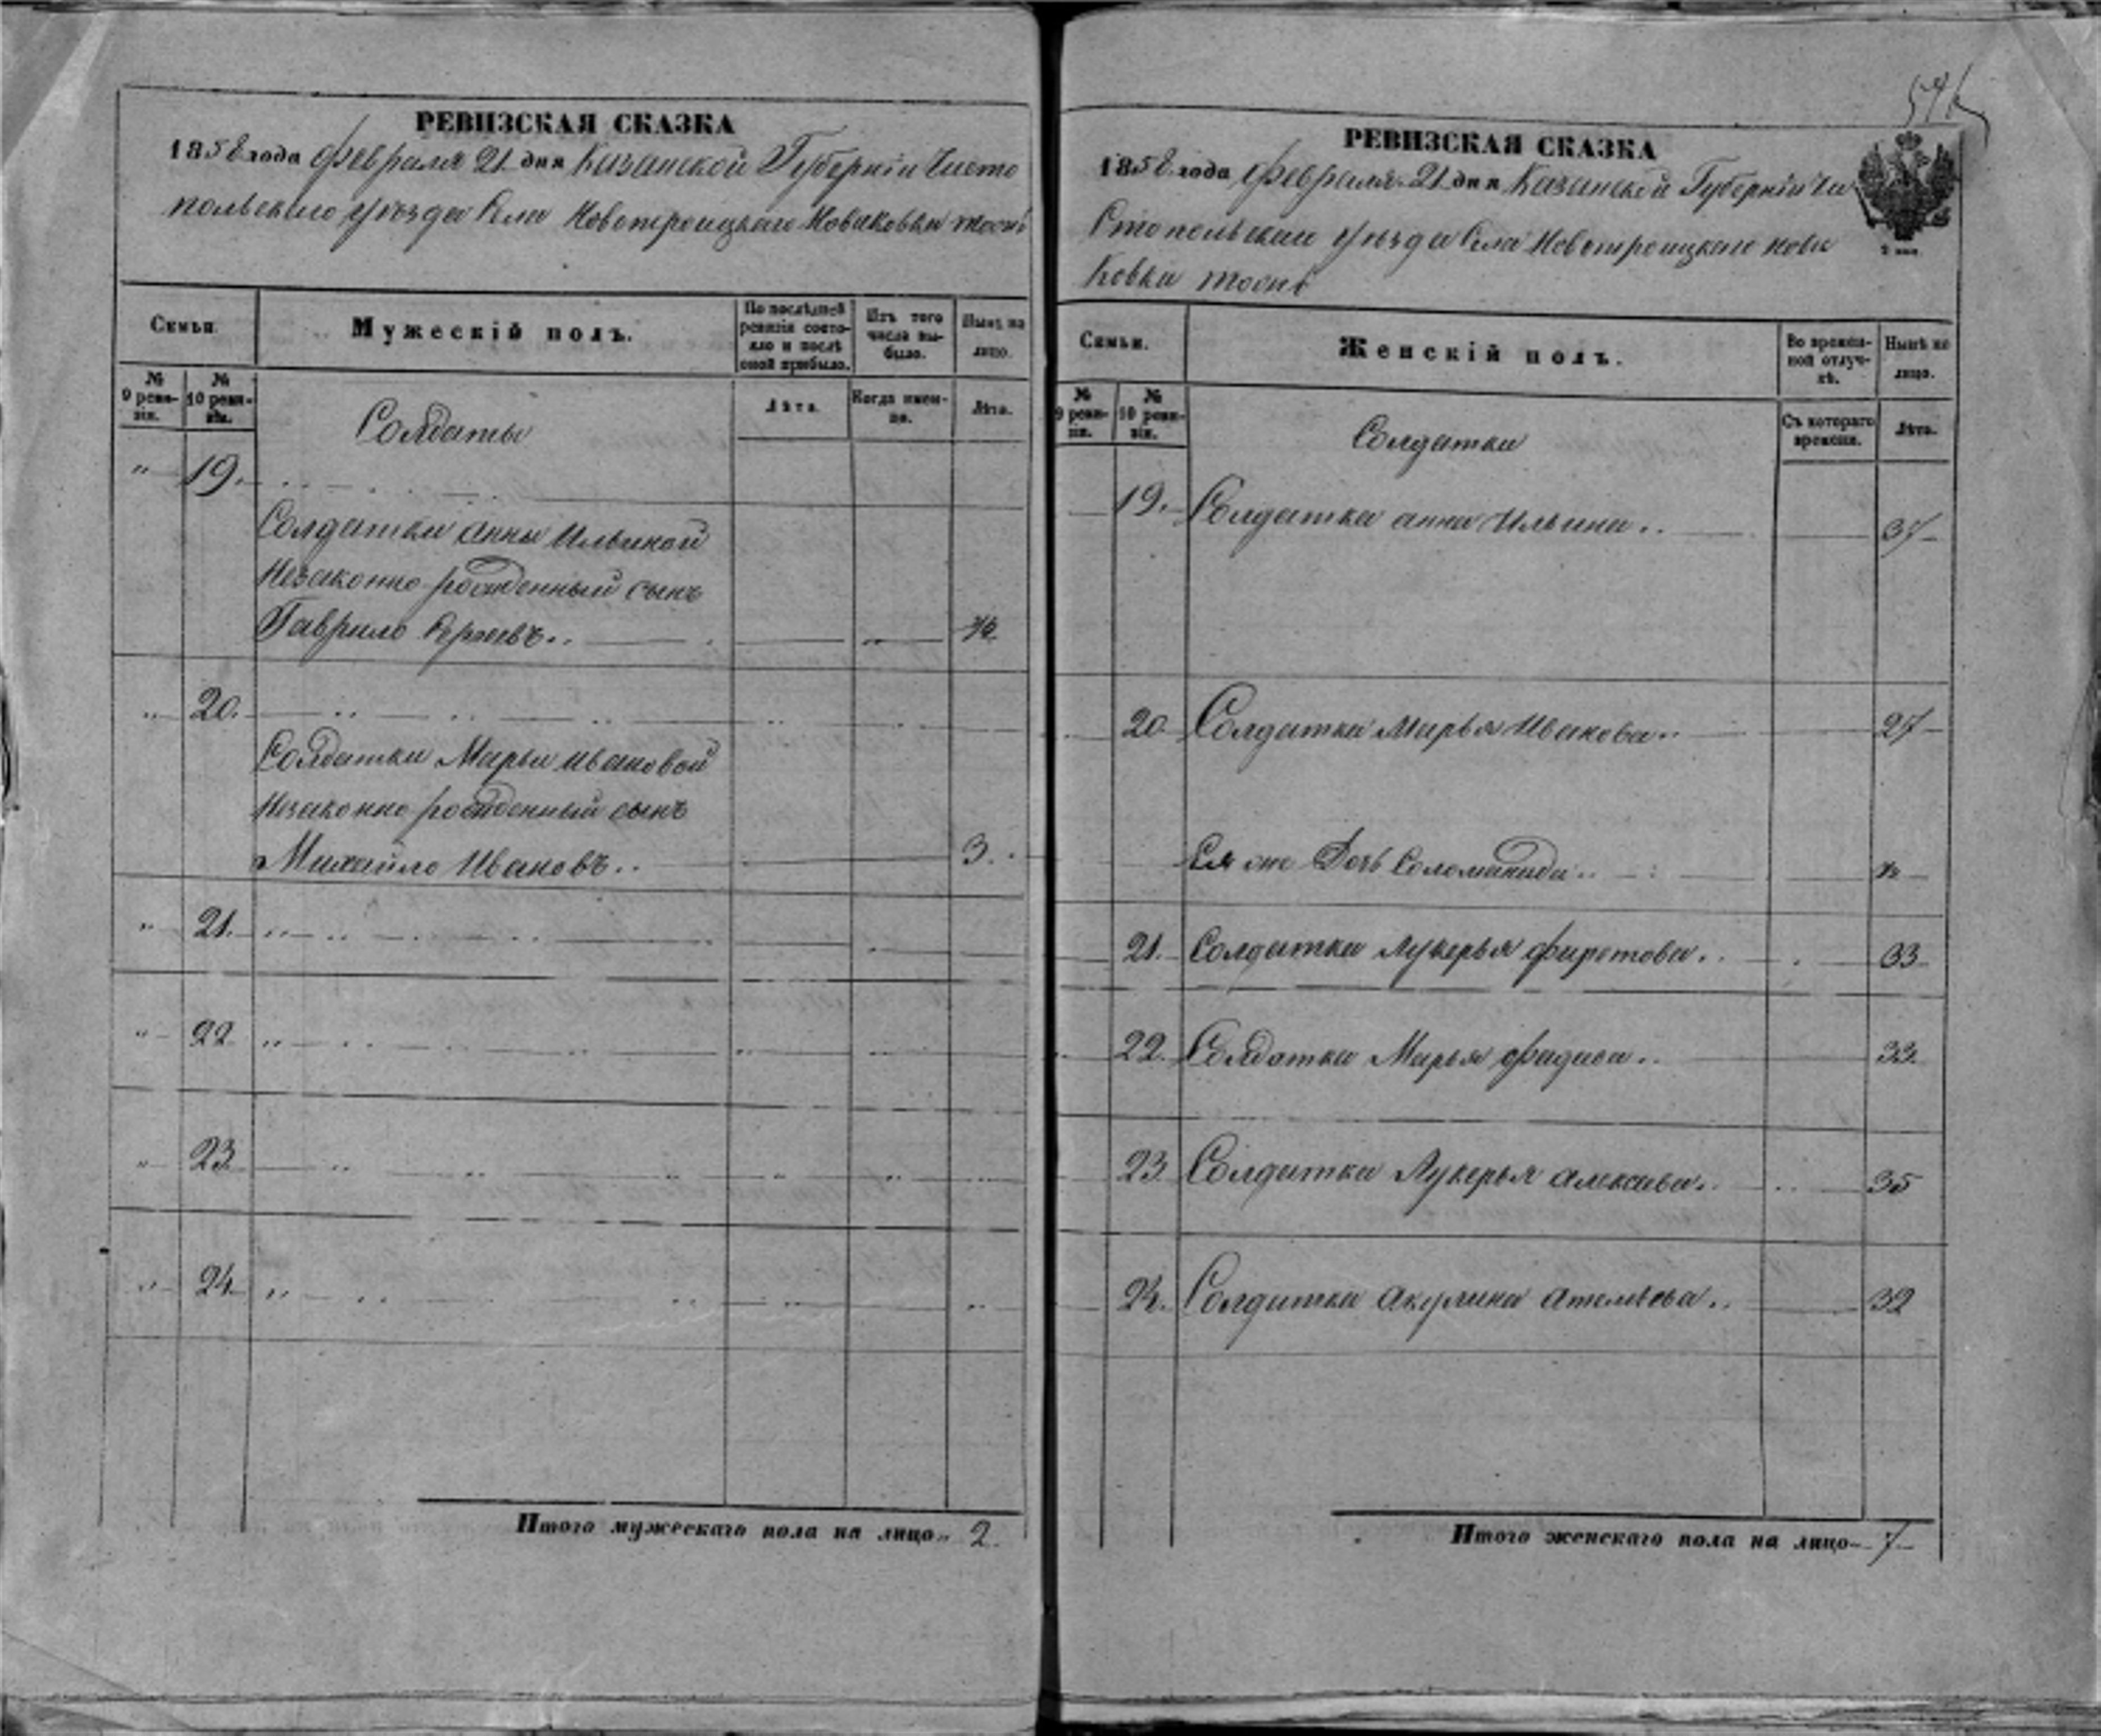 РЕВИЗСКАЯ СКАЗКА
1858 года февраля 21 дня Казанской Губернiи Чисто
польскаго уѣзда Села Новотроицкаго Новиковки тожъ
Семьи.
Мужескiй полъ.
По послѣдней ревизiи состояло и послѣ оной прибыло.
Изъ того числа выбыло.
Нынѣ на лицо.
№ 9 ревизiи.
№ 10 ревизiи.
Лѣта.
Когда именно.
Лѣта.
Солдаты
" 19.
Солдатки анны Ильиной
Незаконно рожденный сынъ
Гаврило
20.
Солдатки Марьи ивановой
Незаконно рожденный сынъ
Михайло Ивановъ.. 3.
" 21.
" 22
" 23
" 24
Итого мужескаго пола на лицо 2.
РЕВИЗСКАЯ СКАЗКА
1858 года февраля 21 дня Казанской Губернiи Чи
стопольскаго уѣзда Села Новотроицкаго нови
ковки тожъ
2 коп.
Семьи.
Женскiй полъ.
Во временной отлучкѣ.
Нынѣ на лицо.
№ 9 ревизiи.
№ 10 ревизiи.
Съ котораго времени.
Лѣта.
Солдатки
19. Солдатка анна Ильина.. 37
20 Солдатка Марья Иванова.. 27
Ея же Дочь Соломанида..
21. Солдатка Лукерья фиретова.. 33
22. Солдатка Марья фадиева.. 33
23 Солдатка Лукерья алексиева.. 35
24. Солдатка Акулина 32
Итого женскаго пола на лицо 7